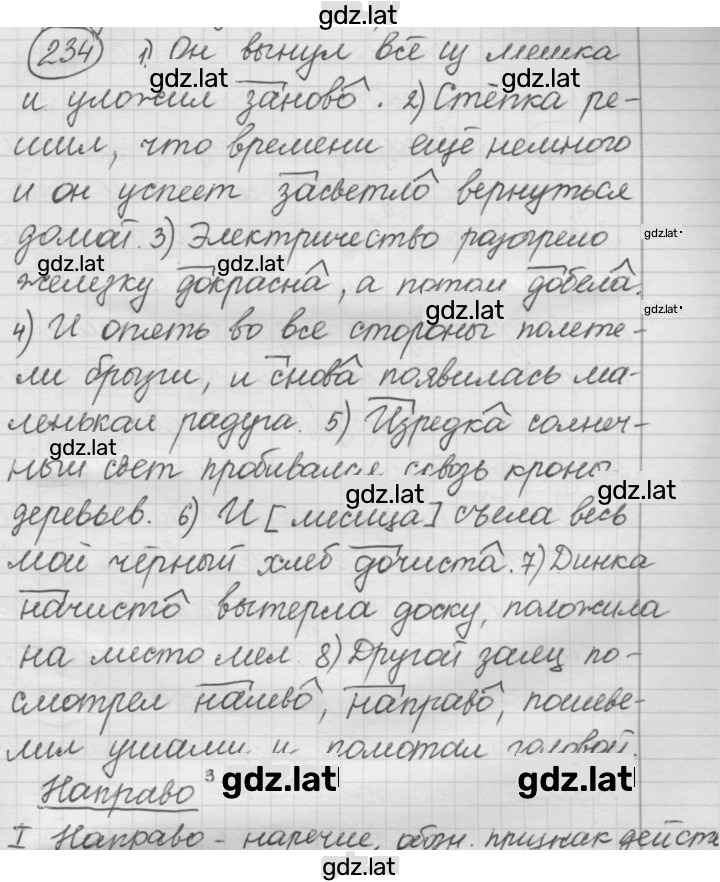 gdz.lat
234 1) Он вынул всё из мешка
gdz.lat gdz.lat
и уложил заново. 2) Стёпка ре-
шил, что времени ещё немного
и он успеет засветло вернуться
домой. 3) Электричество разогрело gdz.lat
gdz.lat gdz.lat
железку докрасна, а потом добела.
gdz.lat gdz.lat
4) И опять во все стороны полете-
ли брызги, и снова появилась ма-
ленькая радуга. 5) Изредка солнеч-
gdz.lat
ный свет пробивался сквозь кроны
gdz.lat gdz.lat
деревьев. 6) И [лисица] съела весь
мой чёрный хлеб дочиста. 7) Динка
начисто вытерла доску, положила
на место мел. 8) Другой заяц по-
смотрел налево, направо, пошеве-
лил ушами и помотал головой.
Направо 3 gdz.lat gdz.lat
I Направо - наречие, обозн. признак действ
gdz.lat